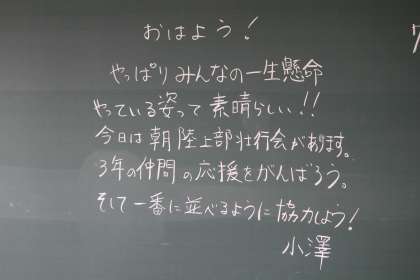 おはよう!
やっぱりみんなの一生懸命
やっている姿って素晴らしい!!
今日は朝陸上部壮行会があります。
3年の仲間の応援をがんばろう。
そして一番に並べるように協力しよう!
小澤